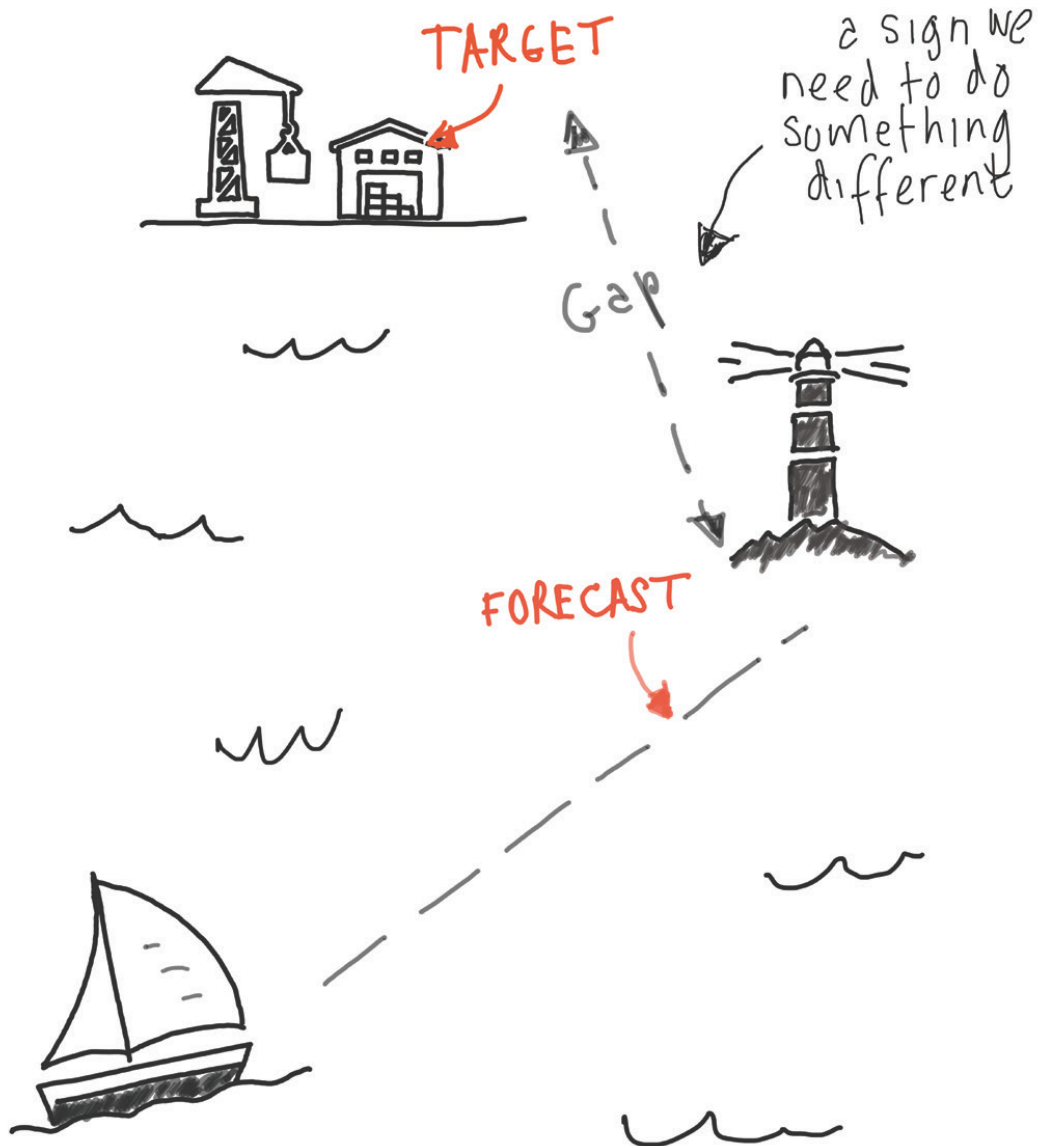 TARGET
a sign we
need to do
something
different
Gap
FORECAST